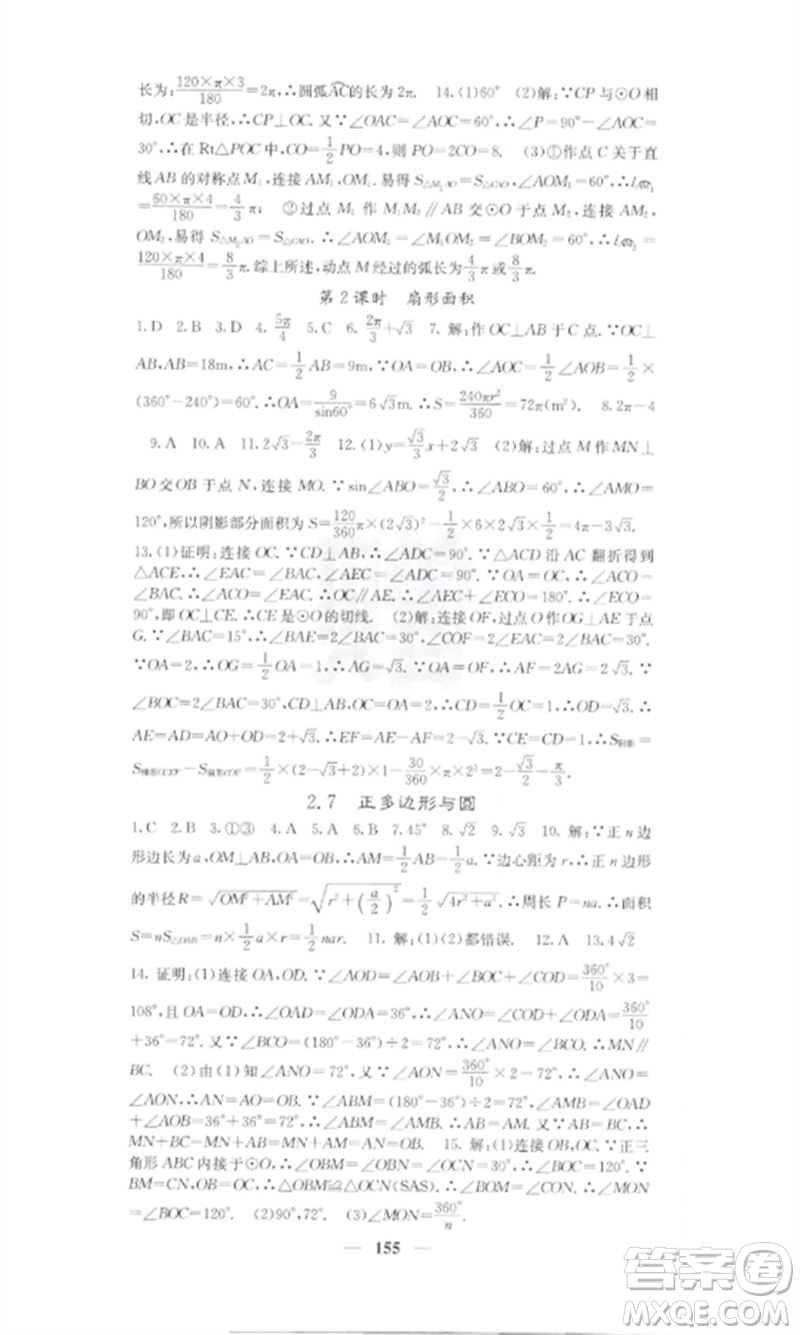 长为:120×π×3/180=2π,∴圆弧AC的长为2π. 14.(1)60° (2)解:∵CP与⊙O相
切,OC是半径,∴CP⊥OC.又∵∠OAC=∠AOC=60°,∴∠P=90°-∠AOC=
30°,∴在Rt△POC中,CO=1/2PO=4,则PO=2CO=8. (3)①作点C关于直
线AB的对称点M₁,连接AM₁,OM₁.易得S△M₁AO=S△CAO,∴∠AOM₁=60°,∴
=60×π×4/180=4/3π; ②过点M₁作M₁M₂∥AB交⊙O于点M₂,连接AM₂,
OM₂,易得S△M₂AO=S△CAO.∴∠AOM₁=∠M₁OM₂=∠BOM₂=60°,∴
=120×π×4/180=8/3π.综上所述,动点M经过的弧长为4/3π或8/3π.
第2课时 扇形面积
1.D 2.B 3.D 4.5π/4 5.C 6.2π/3+√3 7.解:作OC⊥AB于C点.∵OC⊥
AB,AB=18m,∴AC=1/2AB=9m,∵OA=OB,∴∠AOC=1/2∠AOB=1/2×
(360°-240°)=60°,∴OA=9/sin60°=6√3m.∴S=240πr²/360=72π(m²). 8.2π-4
9.A 10.A 11.2√3-2π/3 12.(1)y=√3/3x+2√3 (2)解:过点M作MN⊥
BO交OB于点N,连接MO.∵sin∠ABO=√3/2,∴∠ABO=60°,∴∠AMO=
120°,所以阴影部分面积为S=120/360π×(2√3)²-1/2×6×2√3×1/2=4π-3√3.
13.(1)证明:连接OC.∵CD⊥AB,∴∠ADC=90°.∵△ACD沿AC翻折得到
△ACE,∴∠EAC=∠BAC,∠E=∠ADC=90°.∵OA=OC,∴∠ACO=
∠BAC.∴∠ACO=∠EAC.∴OC∥AE.∴∠AEC+∠ECO=180°.∴∠ECO=
90°,即OC⊥CE.∴CE是⊙O的切线. (2)解:连接OF,过点O作OG⊥AE于点
G.∵∠BAC=15°,∴∠BAE=2∠BAC=30°,∠COF=2∠EAC=2∠BAC=30°.
∵OA=2,∴OG=1/2OA=1,∴AG=√3.∵OA=OF,∴AF=2AG=2√3.∵
∠BOC=2∠BAC=30°,CD⊥AB,OC=OA=2,∴CD=1/2OC=1,OD=√3.∴
AE=AD=AO+OD=2+√3.∴EF=AE-AF=2-√3.∵CE=CD=1,∴S阴影=
-=1/2×(2-√3+2)×1-30/360×π×2²=2-√3/2-π/3.
2.7 正多边形与圆
1.C 2.B 3.①③ 4.A 5.A 6.B 7.45° 8.√2 9.√2 10.解:∵正n边
形边长为a,OM⊥AB,OA=OB,∴AM=1/2AB=1/2a.∵边心距为r,∴正n边形
的半径R=√(OM²+AM²)=√(r²+(a/2)²)=1/2√(4r²+a²).∴周长P=na.∴面积
S=nS△OAB=n×1/2a×r=1/2nar. 11.解:(1)(2)都错误. 12.A 13.4√2
14.证明:(1)连接OA,OD.∵∠AOD=∠AOB+∠BOC+∠COD=360°/10×3=
108°,且OA=OD,∴∠OAD=∠ODA=36°,∴∠ANO=∠COD+∠ODA=360°/10
+36°=72°.又∵∠BCO=(180°-36°)÷2=72°,∴∠ANO=∠BCO.∴MN∥
BC. (2)由(1)知∠ANO=72°,又∵∠AON=360°/10×2=72°,∴∠ANO=
∠AON,∴AN=OA,∵∠ABM=(180°-36°)÷2=72°,∴∠AMB=∠OAD
+∠AOB=36°+36°=72°,∴∠ABM=∠AMB,∴AB=AM.∵AB=BC,∴
MN+BC=MN+AB=MN+AM=AN=OA. 15.解:(1)连接OB,OC.∵正三
角形ABC内接于⊙O,∴∠OBM=∠OBN=∠OCN=30°,∠BOC=120°.∵
BM=CN,OB=OC,∴△OBM≌△OCN(SAS).∴∠BOM=∠CON,∴∠MON
=∠BOC=120°. (2)90° (3)∠MON=360°/n.
155
答案卷
MXQE.COM